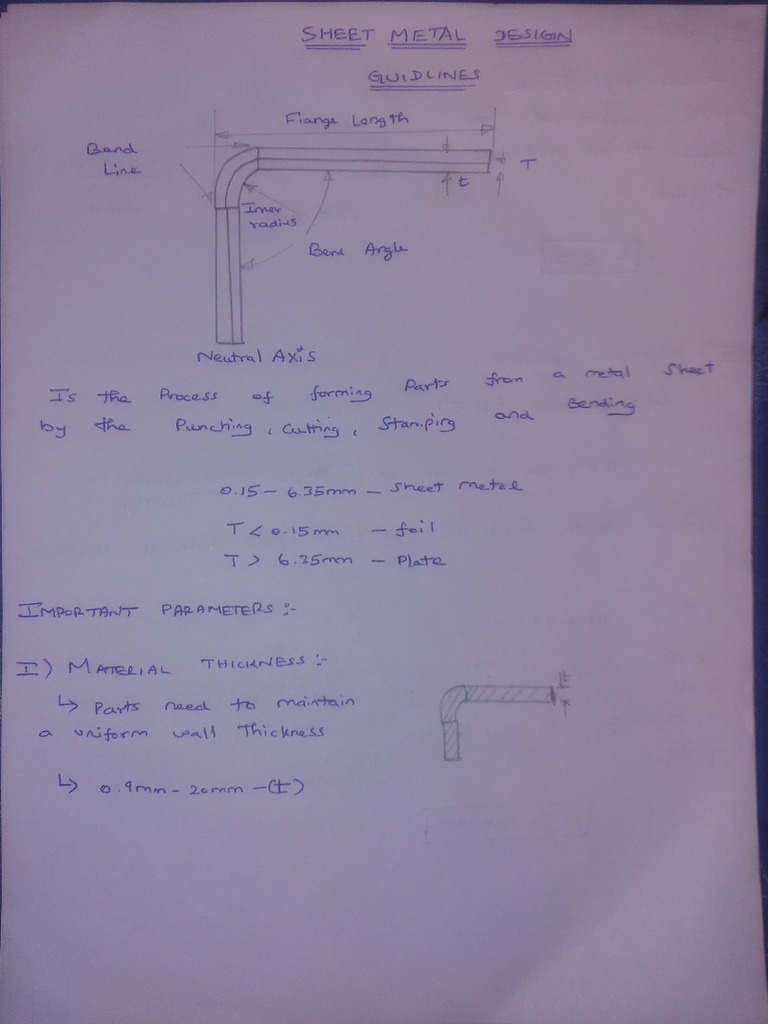 SHEET METAL DESIGN
GUIDLINES
Flange Length
Bend
Line
T
t
Inner
radius
Bend Angle
Neutral Axis
Is the Process of forming Parts from a metal Sheet
by the Punching, Cutting, Stamping and Bending
0.15 - 6.35mm - Sheet metal
T < 0.15mm - foil
T > 6.35mm - Plate
IMPORTANT PARAMETERS :-
I) MATERIAL THICKNESS :-
↳ Parts need to maintain
a uniform wall Thickness
↳ 0.9mm - 20mm - (t)